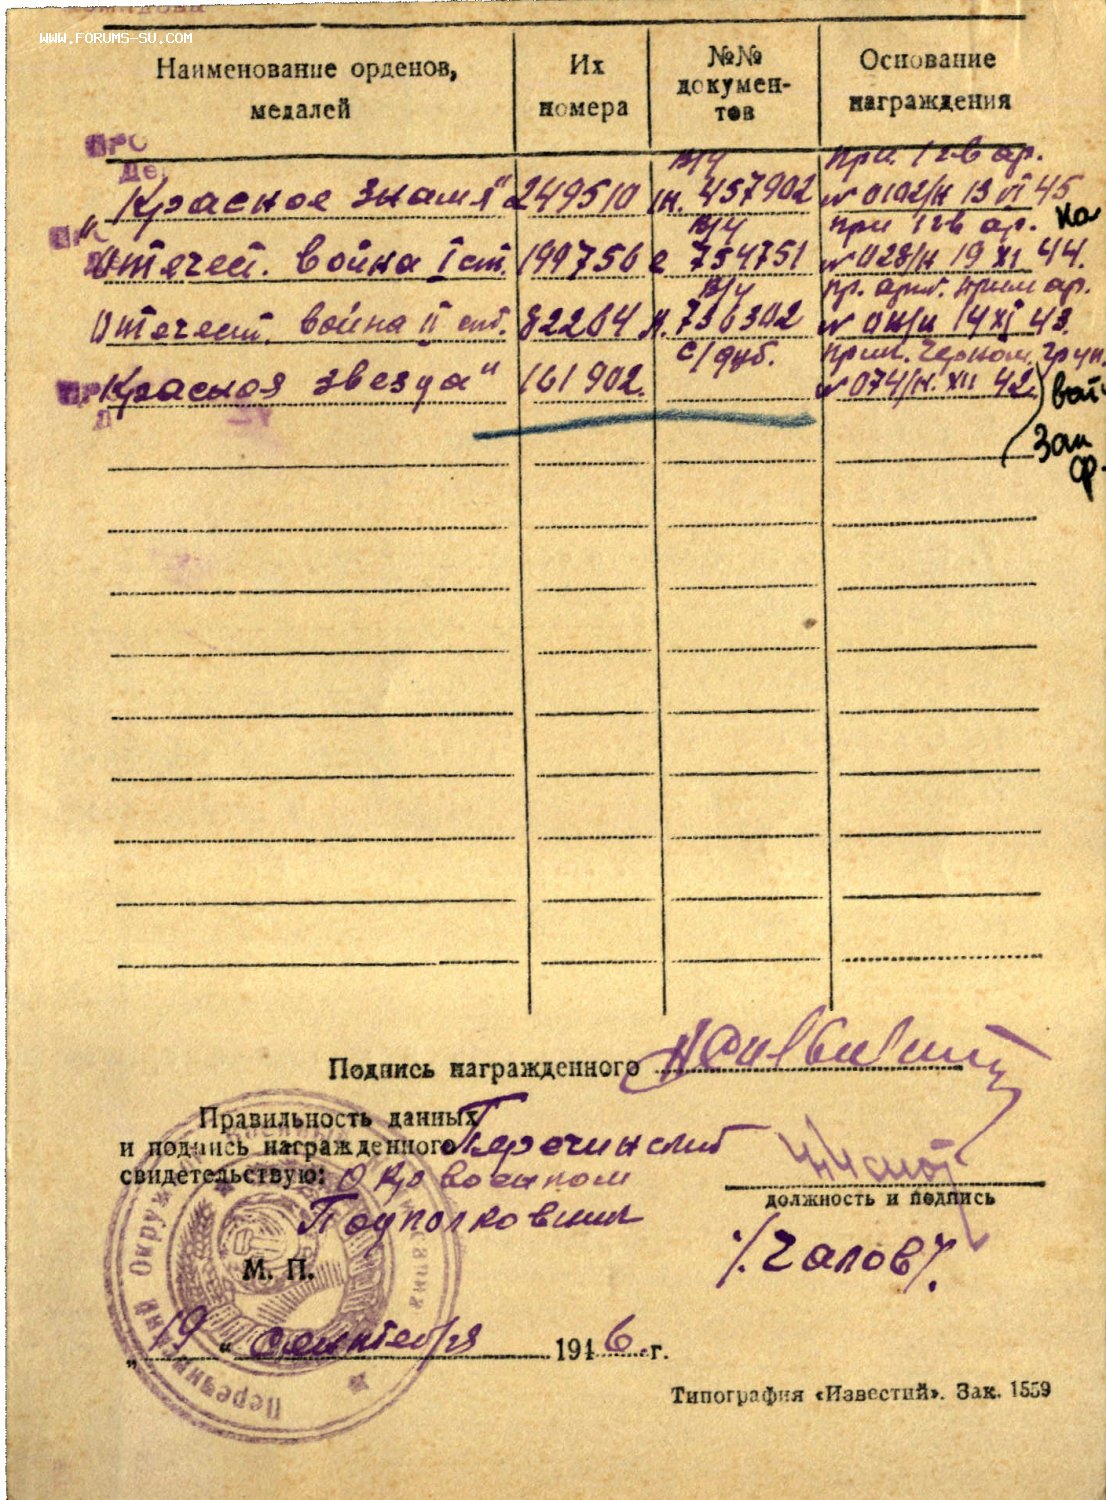 WWW.FORUMS-SU.COM
Наименование орденов, медалей
Их номера
№№ документов
Основание награждения
„Красное Знамя" 249510 в/ч 457902 при. 1 гв ар. № 0102/н 13 VI 45
Отечест. война I ст. 199756 в/ч е 754751 при 1 гв ар. № 028/н 19 XI 44.
Отечест. война II ст. 82264 в/ч 736302 14 XI 43.
Красная звезда" 161902. с/дуб. прик. Черном. груп. № 074/н. XII 42.
Зак
Подпись награжденного
Правильность данных
и подпись награжденного Перечинский
свидетельствую: Окрвоенком
Подполковник
должность и подпись
/Чалов/.
М. П.
„19" сентября 1946 г.
Типография «Известий». Зак. 1559